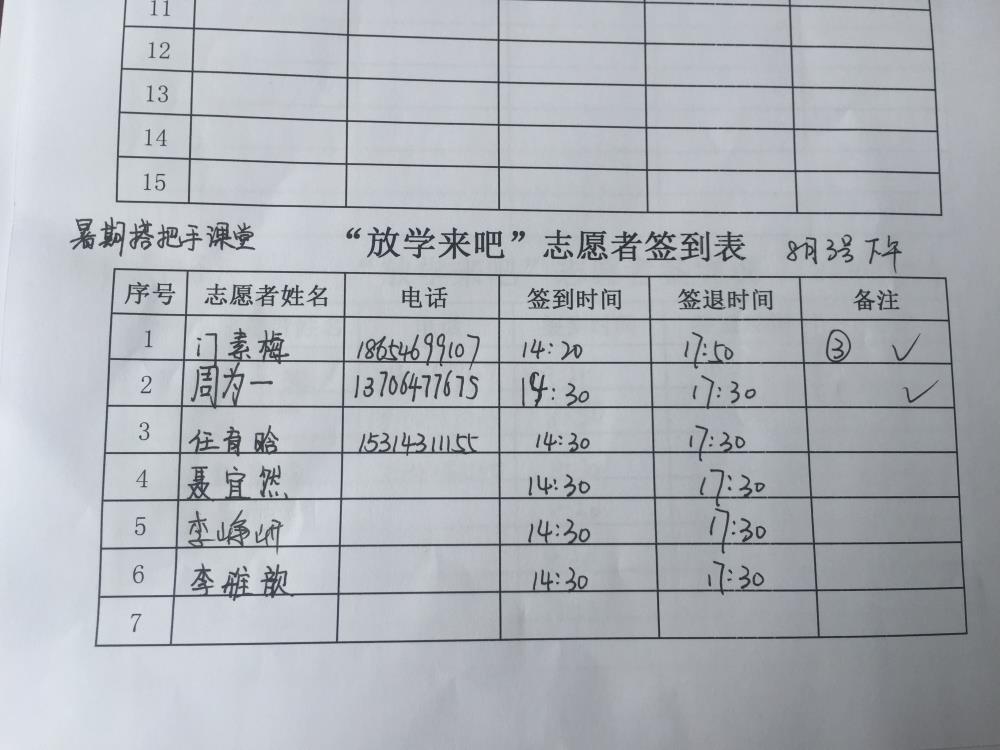 11
12
13
14
15
暑期搭把手课堂 “放学来吧”志愿者签到表 8月3号下午
序号 志愿者姓名 电话 签到时间 签退时间 备注
1 门素梅 18654699107 14:20 17:50 ③ ✓
2 周为一 13706477675 14:30 17:30 ✓
3 任育晗 15314311155 14:30 17:30
4 聂宜然 14:30 17:30
5 李峥岍 14:30 17:30
6 李雅歆 14:30 17:30
7